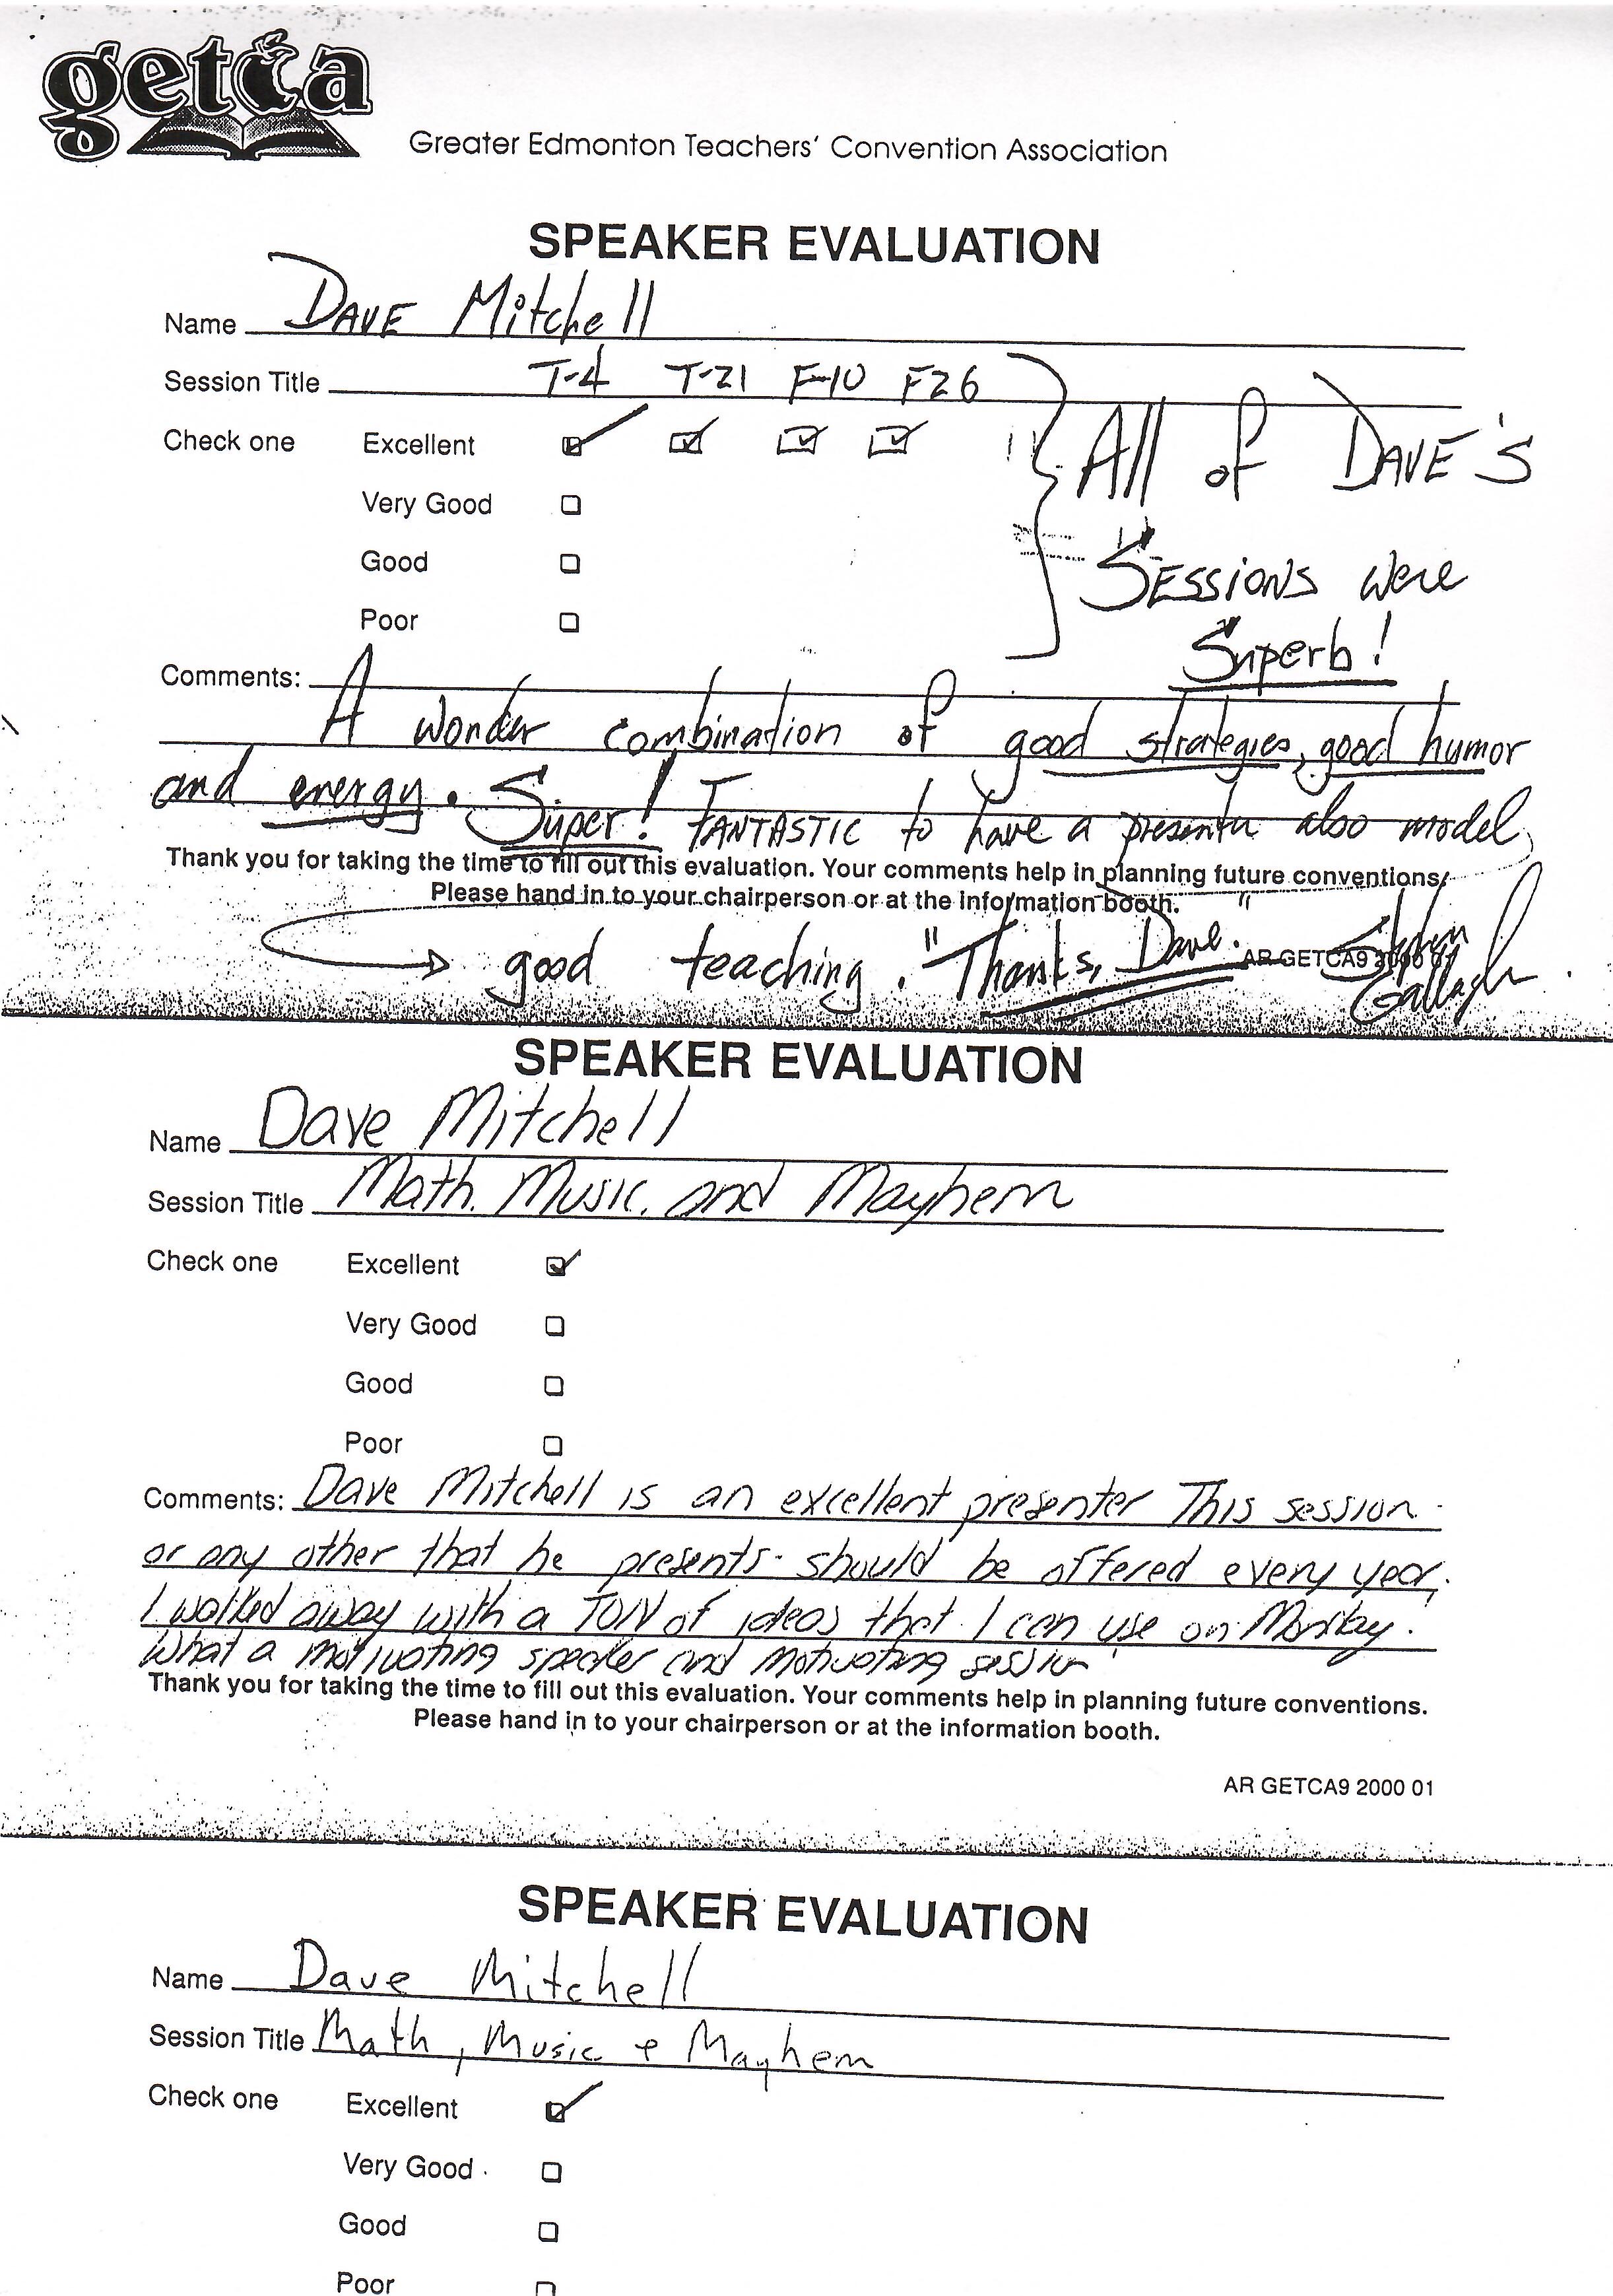 getca
Greater Edmonton Teachers' Convention Association
SPEAKER EVALUATION
Name DAVE Mitchell
Session Title T-4 T-21 F-10 F26
Check one Excellent
All of DAVE'S
Very Good
Good
SESSIONS were
Poor
Superb!
Comments:
A wonder combination of good strategies, good humor
and energy. Super! FANTASTIC to have a presenter also model
Thank you for taking the time to fill out this evaluation. Your comments help in planning future conventions.
Please hand in to your chairperson or at the information booth.
good teaching. "Thanks, Dave."
AR GETCA9 2000 01
SPEAKER EVALUATION
Name Dave Mitchell
Session Title Math. Music. and Mayhem
Check one Excellent
Very Good
Good
Poor
Comments: Dave Mitchell is an excellent presenter This session -
or any other that he presents - should be offered every year.
I walked away with a TON of ideas that I can use on Monday.
What a motivating speaker and motivating session
Thank you for taking the time to fill out this evaluation. Your comments help in planning future conventions.
Please hand in to your chairperson or at the information booth.
AR GETCA9 2000 01
SPEAKER EVALUATION
Name Dave Mitchell
Session Title Math, Music + Mayhem
Check one Excellent
Very Good
Good
Poor